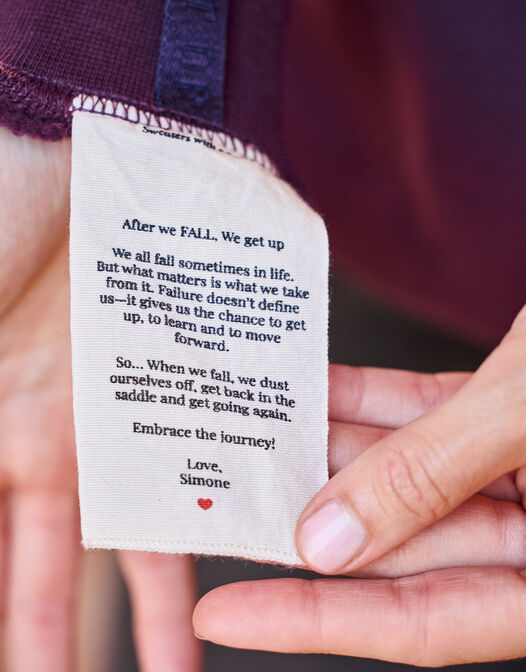 Sweaters with
After we FALL, We get up
We all fall sometimes in life.
But what matters is what we take
from it. Failure doesn't define
us—it gives us the chance to get
up, to learn and to move
forward.
So... When we fall, we dust
ourselves off, get back in the
saddle and get going again.
Embrace the journey!
Love,
Simone